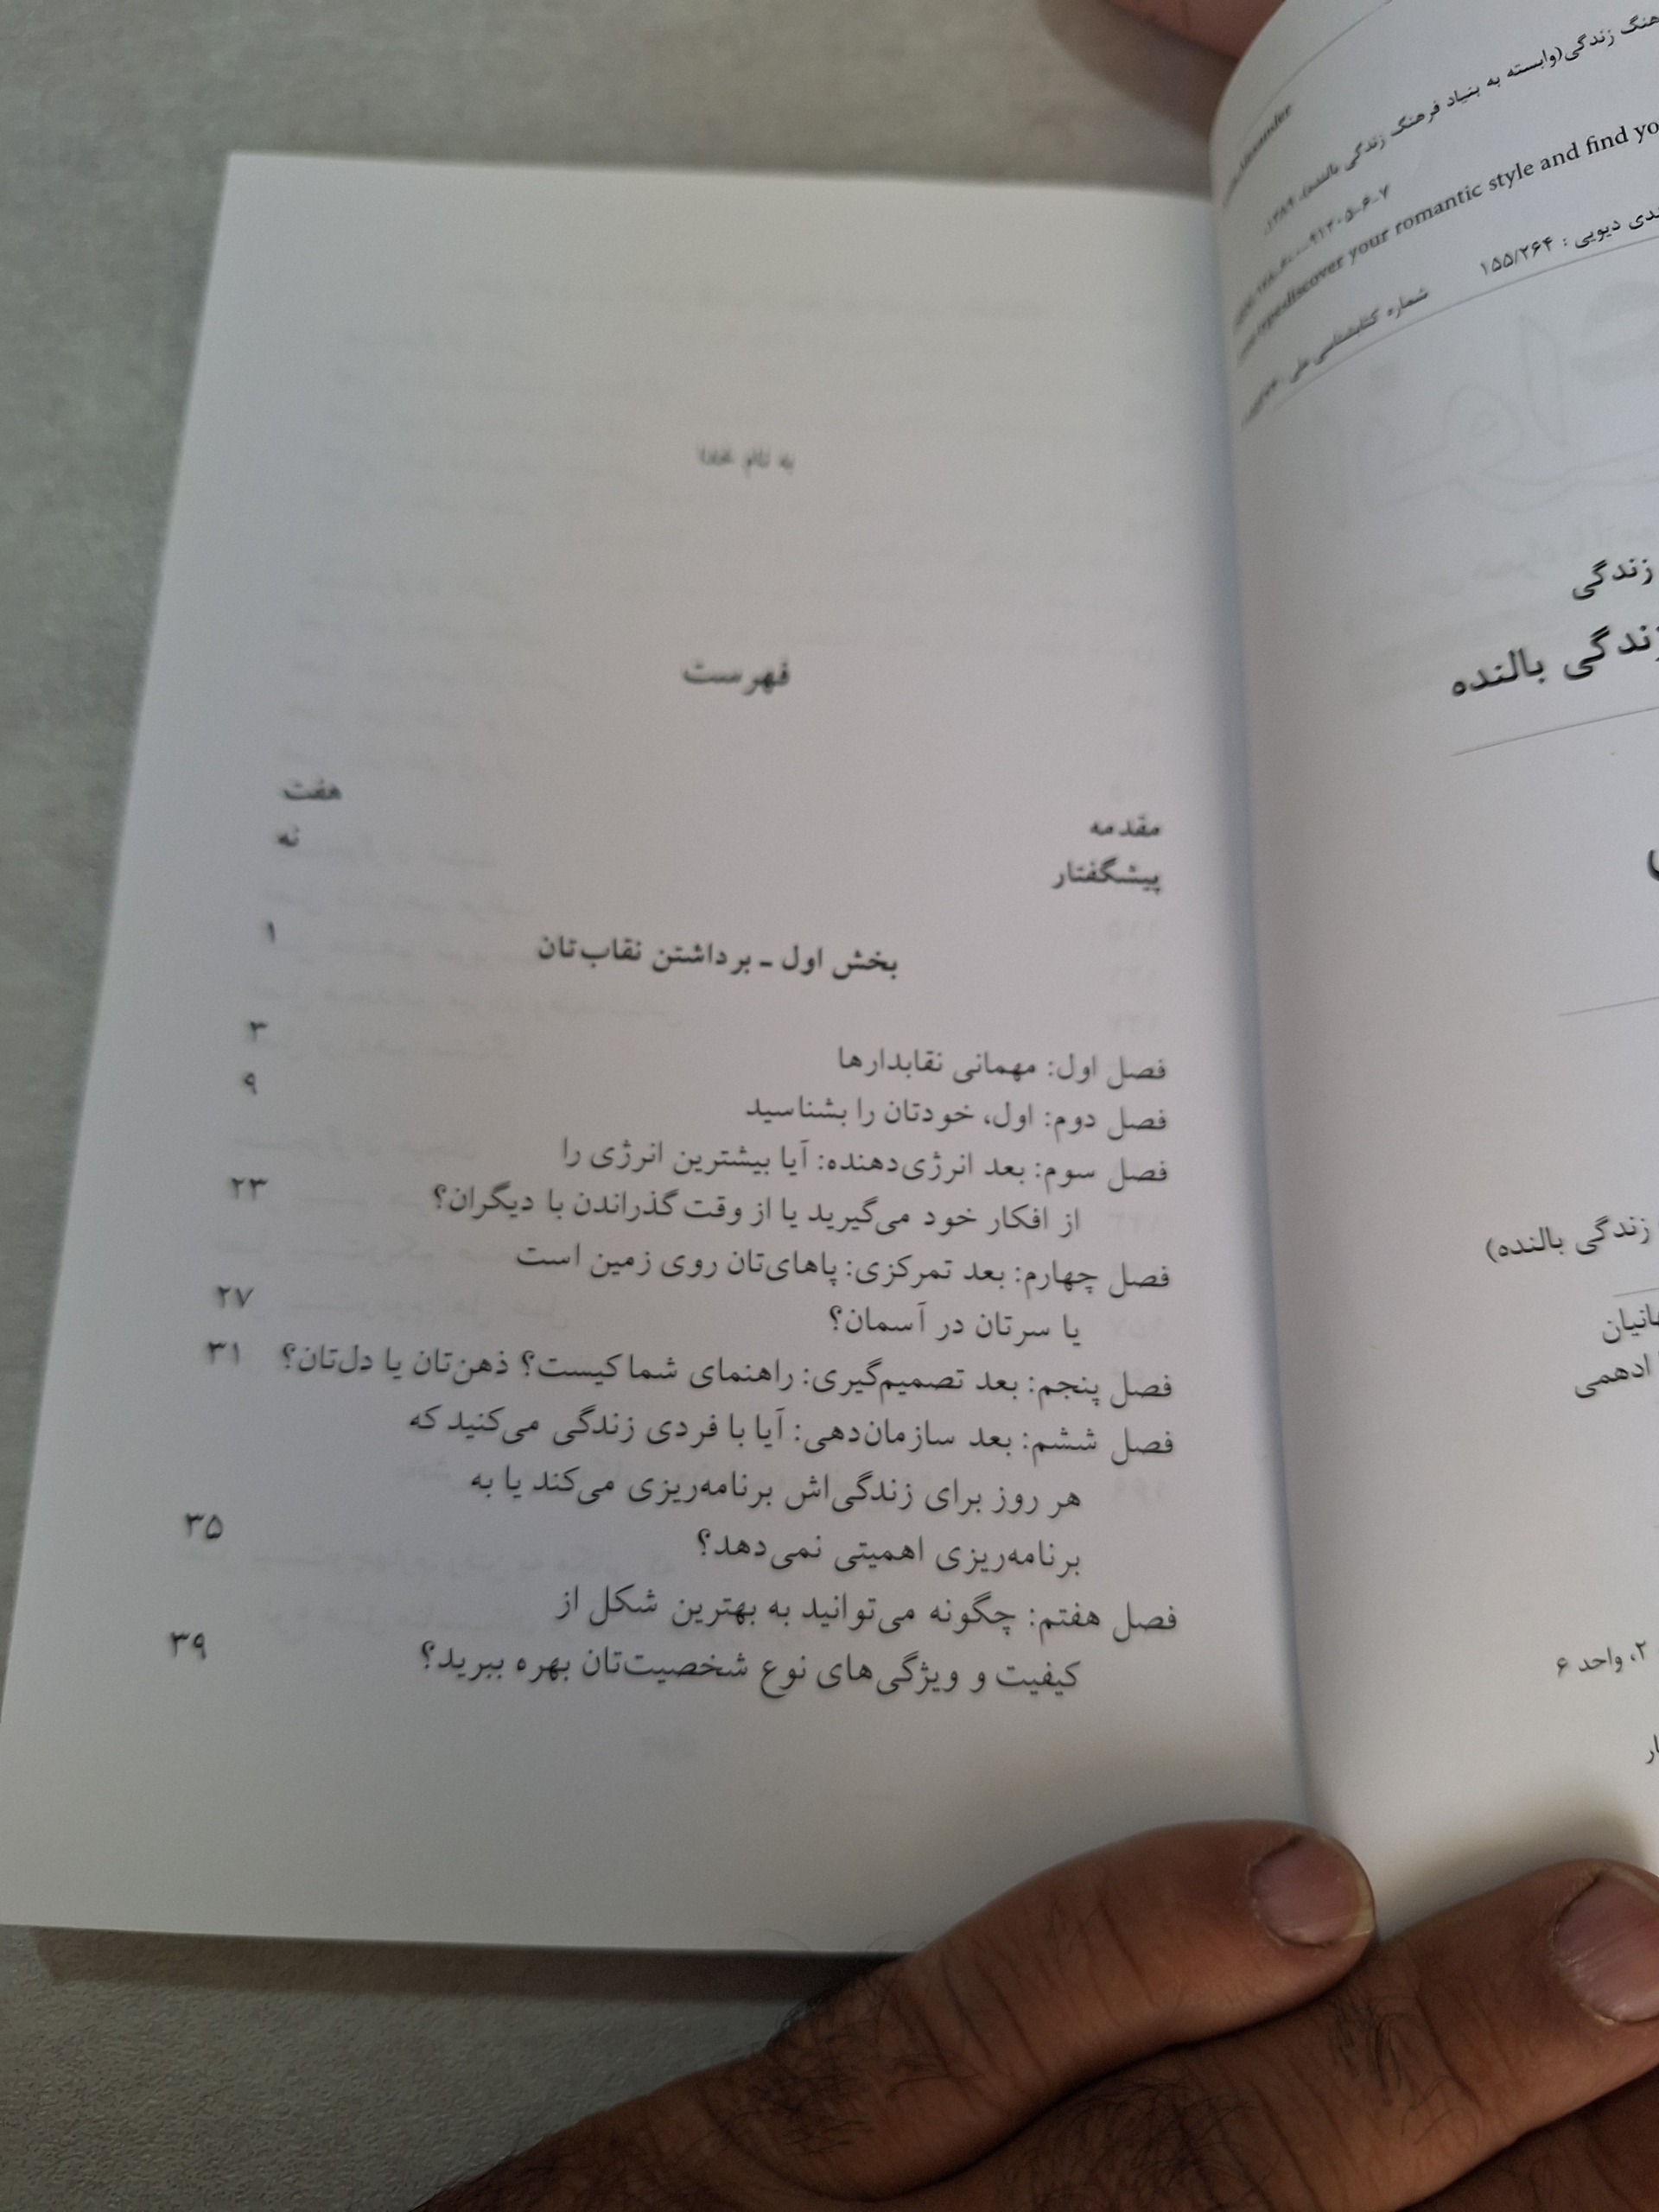 به نام خدا
فهرست
مقدمه هفت
پیشگفتار نه
بخش اول ـ برداشتن نقاب‌تان ۱
فصل اول: مهمانی نقابدارها ۳
فصل دوم: اول، خودتان را بشناسید ۹
فصل سوم: بعد انرژی‌دهنده: آیا بیشترین انرژی را
از افکار خود می‌گیرید یا از وقت گذراندن با دیگران؟ ۲۳
فصل چهارم: بعد تمرکزی: پاهای‌تان روی زمین است
یا سرتان در آسمان؟ ۲۷
فصل پنجم: بعد تصمیم‌گیری: راهنمای شما کیست؟ ذهن‌تان یا دل‌تان؟ ۳۱
فصل ششم: بعد سازمان‌دهی: آیا با فردی زندگی می‌کنید که
هر روز برای زندگی‌اش برنامه‌ریزی می‌کند یا به
برنامه‌ریزی اهمیتی نمی‌دهد؟ ۳۵
فصل هفتم: چگونه می‌توانید به بهترین شکل از
کیفیت و ویژگی‌های نوع شخصیت‌تان بهره ببرید؟ ۳۹
زندگی(وابسته به بنیاد فرهنگ زندگی بالنده)، ۱۳۸۹.
discover your romantic style and find
دیویی : ۱۵۵/۲۶۴
شماره کتابشناسی ملی
زندگی
زندگی بالنده
زندگی بالنده)
ادهمی
۲، واحد ۶